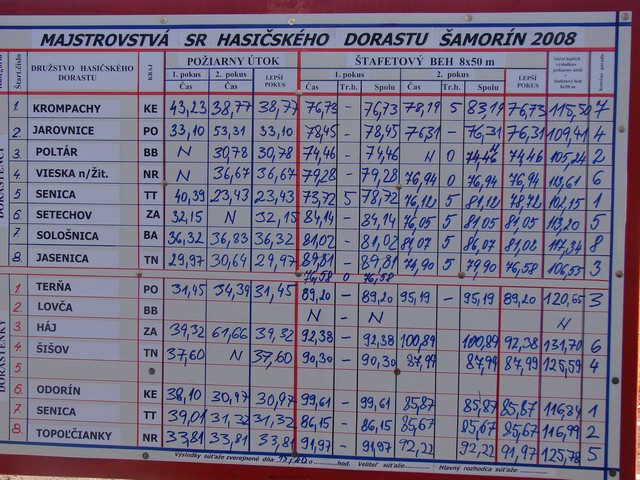 MAJSTROVSTVÁ SR HASIČSKÉHO DORASTU ŠAMORÍN 2008
Štart.číslo DRUŽSTVO HASIČSKÉHO DORASTU KRAJ POŽIARNY ÚTOK ŠTAFETOVÝ BEH 8x50 m
1. pokus 2. pokus LEPŠÍ POKUS 1. pokus 2. pokus LEPŠÍ POKUS
Čas Čas Čas Tr.b. Spolu Čas Tr.b. Spolu
1. KROMPACHY KE 43,23 38,77 38,77 76,73 - 76,73 78,19 5 83,19 76,73 115,50 7
2. JAROVNICE PO 33,10 53,31 33,10 78,45 - 78,45 76,31 - 76,31 76,31 109,41 4
3. POLTÁR BB N 30,78 30,78 74,46 - 74,46 N 0 74,46 105,24 2
4. VIESKA n/Žit. NR N 36,67 36,67 79,28 - 79,28 76,94 0 76,94 76,94 113,61 6
5. SENICA TT 40,39 23,43 23,43 73,72 5 78,72 76,12 5 81,12 78,72 102,15 1
6. SETECHOV ZA 32,15 N 32,15 84,14 - 84,14 76,05 5 81,05 81,05 113,20 5
7. SOLOŠNICA BA 36,32 36,83 36,32 81,02 - 81,02 81,07 5 86,07 81,02 117,34 8
8. JASENICA TN 29,97 30,64 29,97 89,81 - 89,81 74,90 5 79,90 76,58 106,55 3
76,58 0 76,58
1. TERŇA PO 31,45 34,39 31,45 89,20 - 89,20 95,19 - 95,19 89,20 120,65 3
2. LOVČA BB N - N N
3. HÁJ ZA 39,32 61,66 39,32 92,38 - 92,38 100,89 100,89 92,38 131,70 6
4. ŠIŠOV TN 37,60 N 37,60 90,30 - 90,30 87,99 87,99 87,99 125,59 4
5.
6. ODORÍN KE 38,10 30,97 30,97 99,61 - 99,61 85,87 85,87 85,87 116,84 1
7. SENICA TT 39,01 31,32 31,32 86,15 - 86,15 85,67 85,67 85,67 116,99 2
8. TOPOĽČIANKY NR 33,81 33,81 33,81 91,97 - 91,97 92,22 92,22 91,97 125,78 5
Výsledky súťaže zverejnené dňa hod. Veliteľ súťaže: Hlavný rozhodca súťaže: